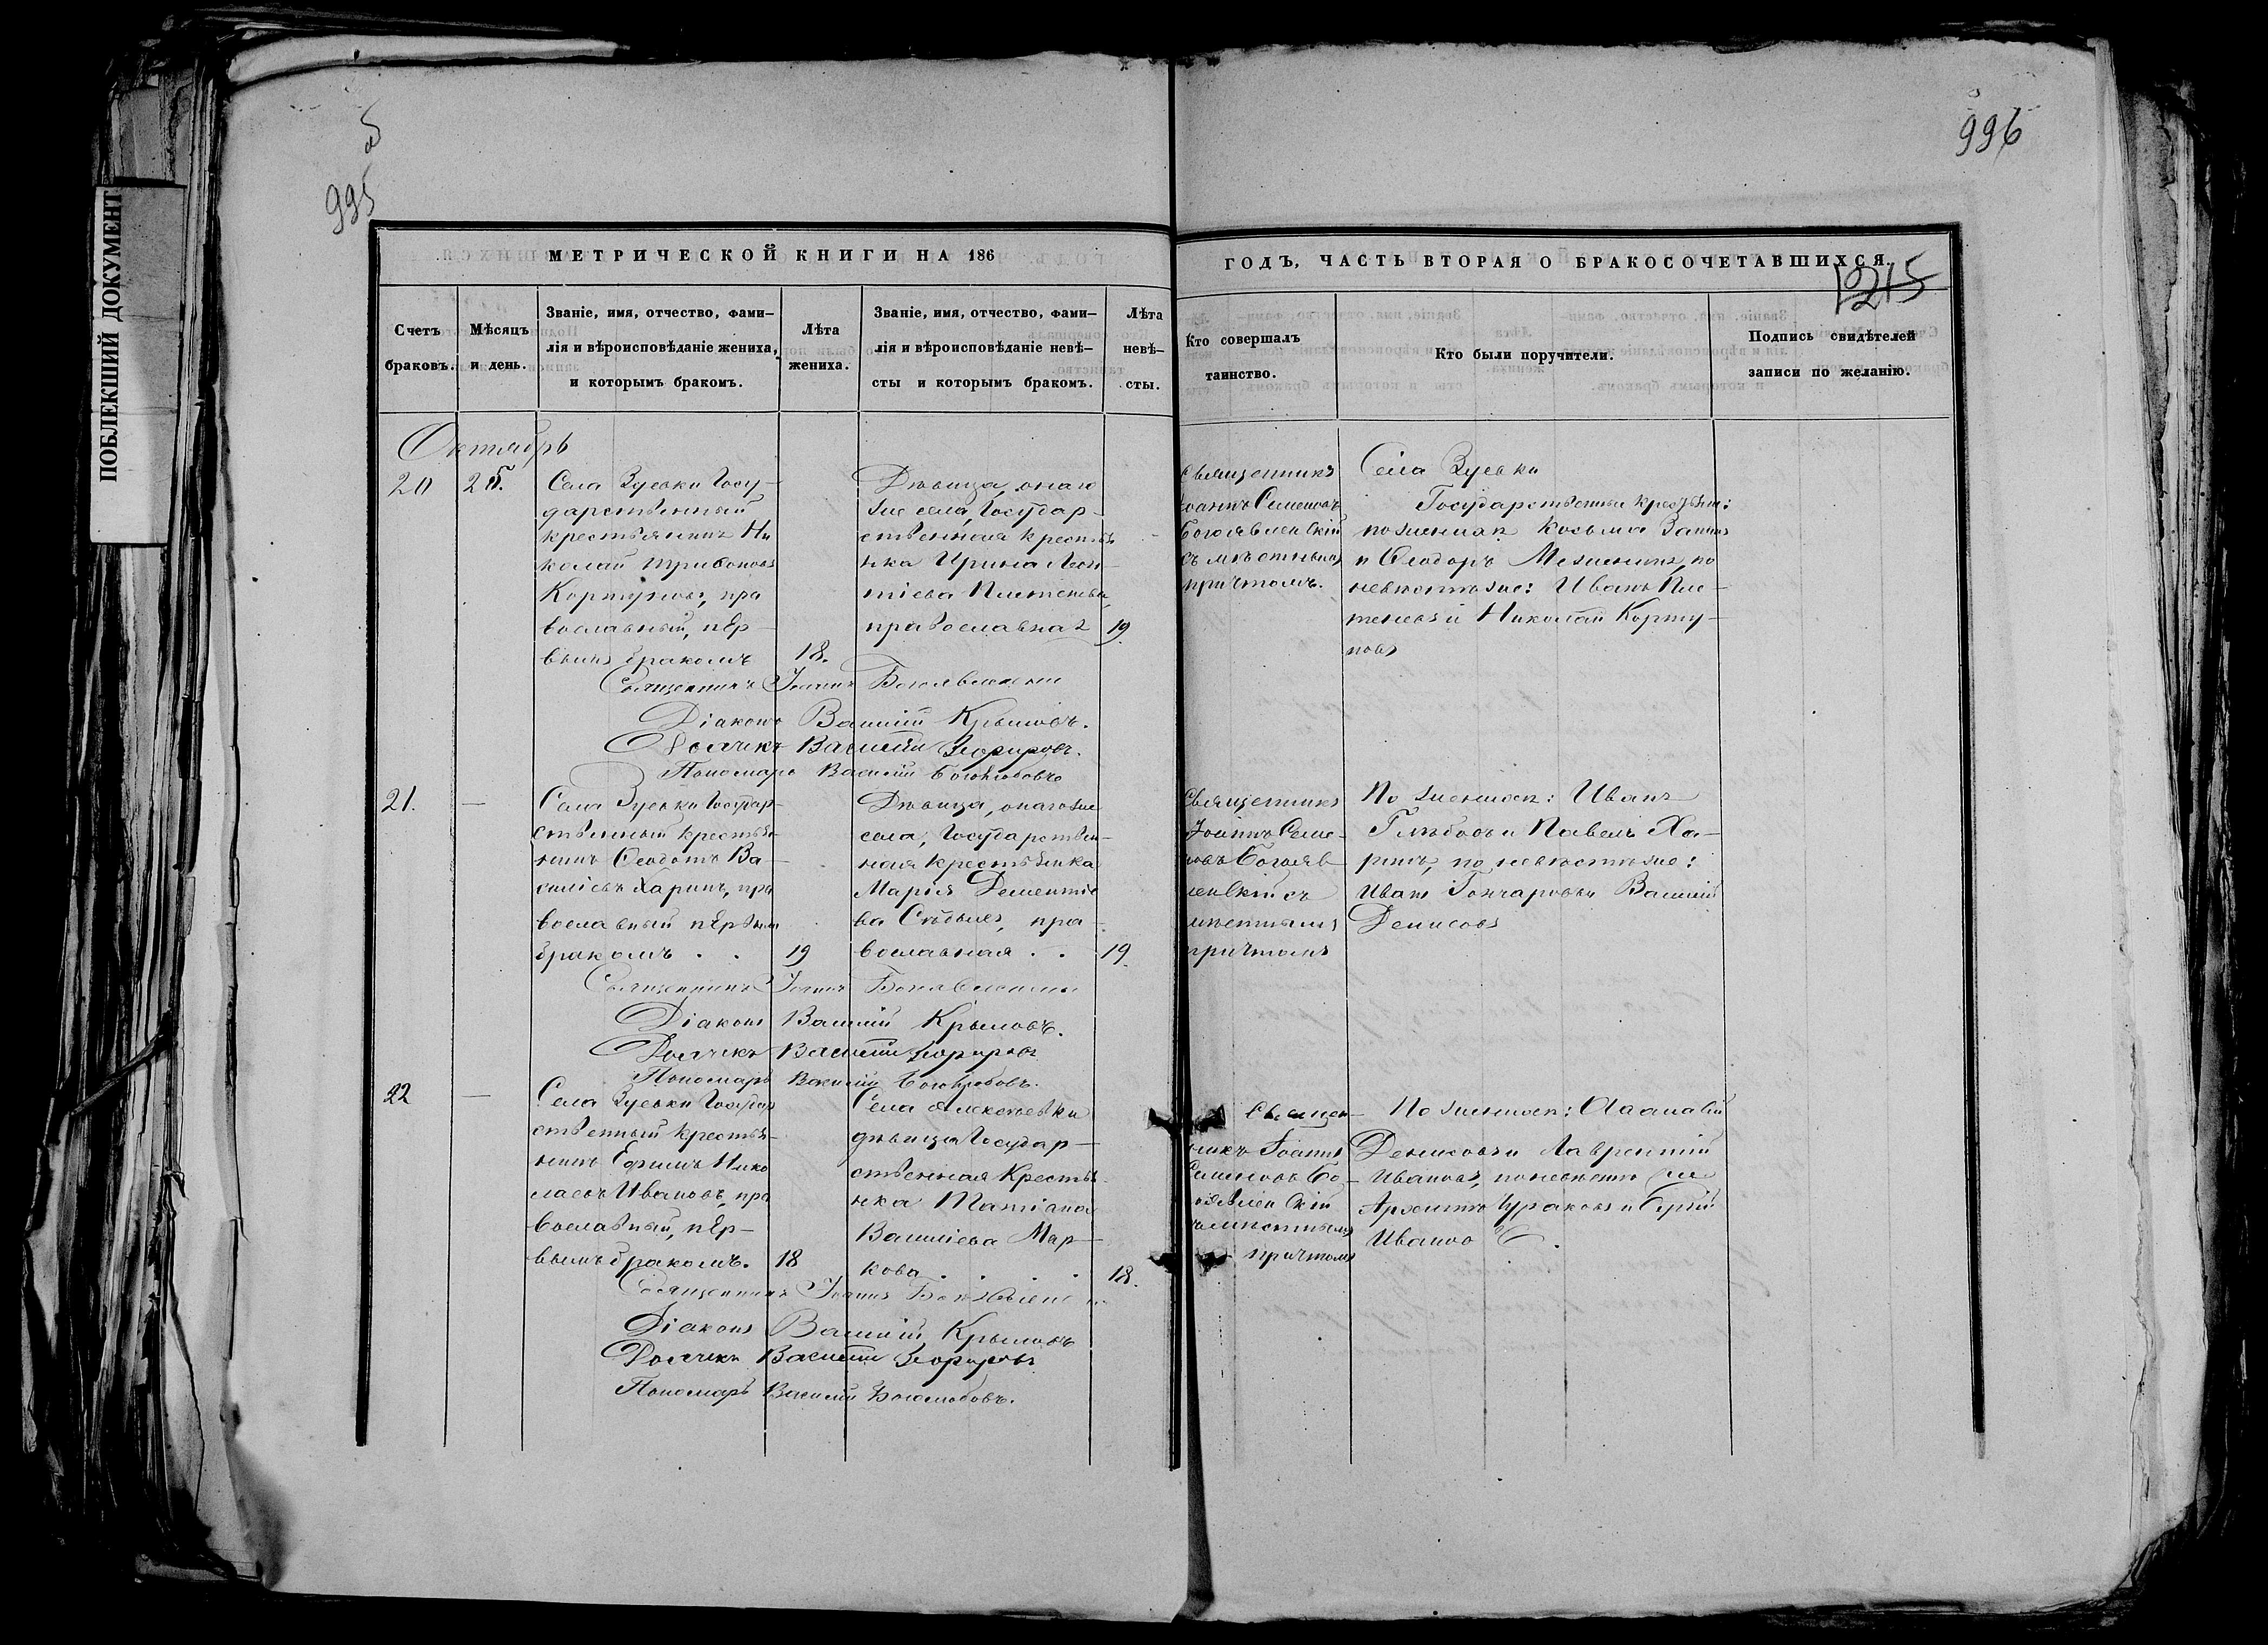 995
об
996
ПОБЛЕКШИЙ ДОКУМЕНТ
МЕТРИЧЕСКОЙ КНИГИ НА 186
ГОДЪ, ЧАСТЬ ВТОРАЯ О БРАКОСОЧЕТАВШИХСЯ.
215
Счетъ
браковъ.
Мѣсяцъ
и день.
Званіе, имя, отчество, фами-
лія и вѣроисповѣданіе жениха,
и которымъ бракомъ.
Лѣта
жениха.
Званіе, имя, отчество, фами-
лія и вѣроисповѣданіе невѣ-
сты и которымъ бракомъ.
Лѣта
невѣ-
сты.
Кто совершалъ
таинство.
Кто были поручители.
Подпись свидѣтелей
записи по желанію.
Октябрь
20
Села Зуевки Госу-
дарственный
крестьянинъ Ни
колай
Кортуновъ, пра
вославный, пер-
вымъ бракомъ
18.
Дѣвица, онаго
же села, Государ-
ственная крестья
нка Ирина Леон-
тіева Плетенева,
православная
19.
Священникъ
Іоаннъ Семеновъ
Богоявленскій
съ мѣстнымъ
причтомъ.
Села Зуевки
Государственные крестьяне:
по женихѣ Козьма
и Ѳеодоръ по
невѣстѣ же: Иванъ Пле-
теневъ и Николай Корту-
новъ
Священникъ Іоаннъ Богоявленскій
Діаконъ Василій Крыловъ.
Дьячекъ Василій Зефировъ.
Пономарь Василій Боголюбовъ
21.
—
Села Зуевки Государ-
ственный крестья-
нинъ Ѳеодотъ Ва-
силіевъ Харинъ, пра
вославный первым
бракомъ . .
19
Дѣвица, онаго же
села, Государствен-
ная крестьянка
Марія Дементіе
ва Сѣдыхъ, пра-
вославная . .
19.
Священникъ
Іоаннъ Семе-
новъ Богояв
ленскій съ
мѣстнымъ
причтомъ
По женихѣ: Иванъ
Глѣбовъ и Павелъ Ха-
ринъ, по невѣстѣ же:
Иванъ Гончаровъ и Василій
Денисовъ
Священникъ Іоаннъ Богоявленскій
Діаконъ Василій Крыловъ.
Дьячекъ Василій Зефировъ
Пономарь Василій Боголюбовъ.
22
—
Села Зуевки Государ
ственный крестья-
нинъ Ефимъ Нико
лаевъ Ивановъ, пра
вославный, пер-
вымъ бракомъ.
18
Села Алексеевки
дѣвица Государ-
ственная Крестья-
нка Татіана
Василіева Мар-
кова . . . .
18.
Священ-
никъ Іоаннъ
Семеновъ Бо-
гоявленскій
съ мѣстнымъ
причтомъ
По женихѣ: Аѳанасій
Денисовъ и Лаврентій
Ивановъ, по невѣстѣ же
и Сергій
Ивановъ.
Священникъ Іоаннъ Богоявленскій
Діаконъ Василій Крыловъ
Дьячекъ Василій Зефировъ
Пономарь Василій Боголюбовъ.